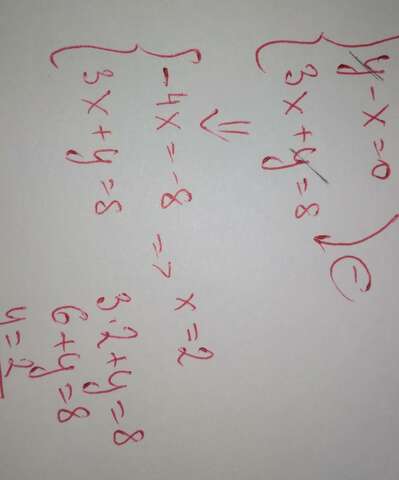 y - x = 0
3x + y = 8
⊖
⇓
-4x = -8 => x = 2
3x + y = 8
3·2 + y = 8
6 + y = 8
y = 2